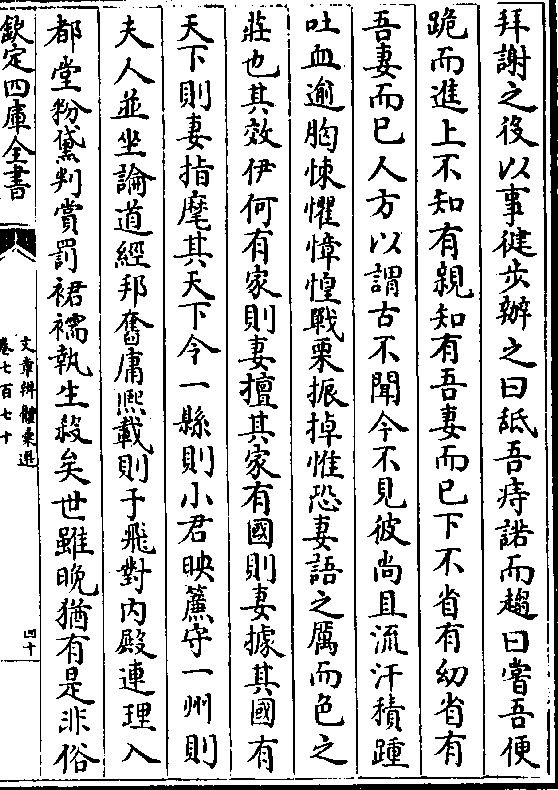 拜謝之後以事徤步辦之曰舐吾痔諾而趨曰嘗吾便
跪而進上不知有親知有吾妻而已下不省有幼省有
吾妻而已人方以謂古不聞今不見彼尚且流汗積踵
吐血逾胸悚懼慞惶戰栗振掉惟恐妻語之厲而色之
莊也其效伊何有家則妻擅其家有國則妻據其國有
天下則妻指麾其天下今一縣則小君映簾守一州則
夫人並坐論道經邦奮庸熙載則于飛對內殿連理入
都堂粉黛判賞罰裙襦執生殺矣世雖晚猶有是非俗
欽定四庫全書
文章辨體彚選
卷七百七十
四十